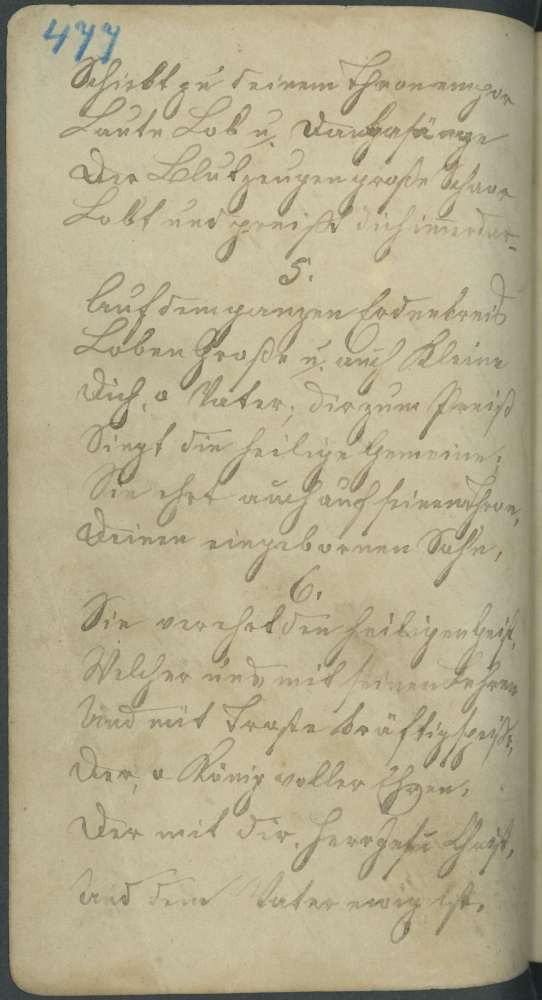 477
Schickt zu deinem Thron empor
Laute Lob u. Dankgesänge
Der Blutzeugen große Schaar
Lobt und preißt dich immerdar
5.
Auf dem ganzen Erdenkreis
Loben Große u. auch Kleine
Dich, o Vater, dir zum Preiß
Singt die heilige Gemeine;
Sie ehrt auch auf seinem Thron,
Deinen eingebornen Sohn,
6.
Sie verehrt den heiligen Geist,
Welcher uns mit seinen Lehren
Und mit Troste kräftig speißt,
Der, o König voller Ehren,
Der mit dir, Herr Jesu Christ,
Und dem Vater ewig ist.